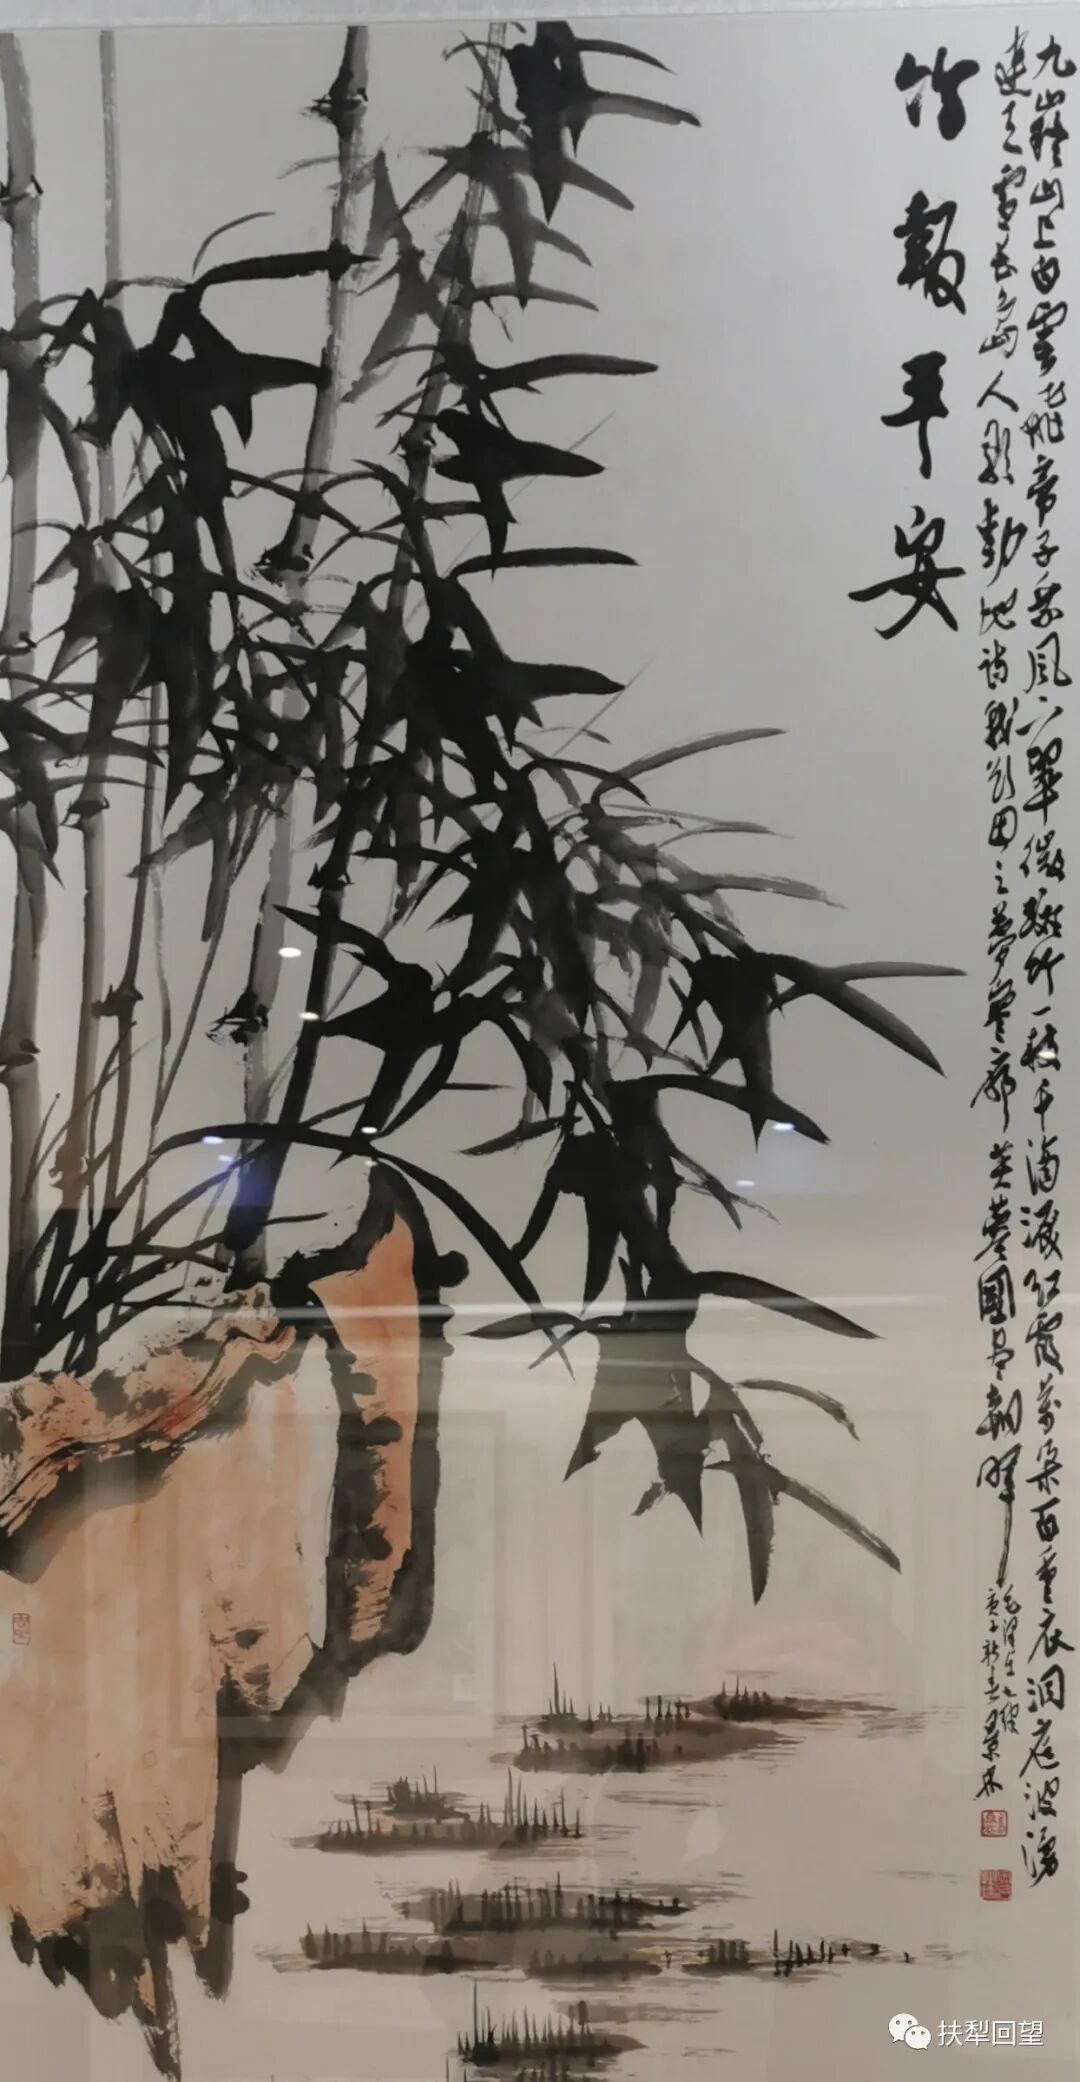 竹報平安
九嶷山上白雲飛帝子乘風下翠微斑竹一枝千滴淚紅霞萬朵百重衣洞庭波湧
連天雪長島人歌動地詩我欲因之夢寥廓芙蓉國裏盡朝暉
毛澤東七律
庚子新春景林
扶犁回望